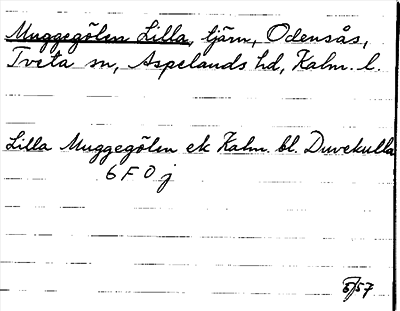 Muggegölen Lilla, tjärn, Odensås,
Tveta sn, Aspelands hd, Kalm. l.
Lilla Muggegölen ek Kalm. bl. Duvekulla
6 F 0 j
5/57